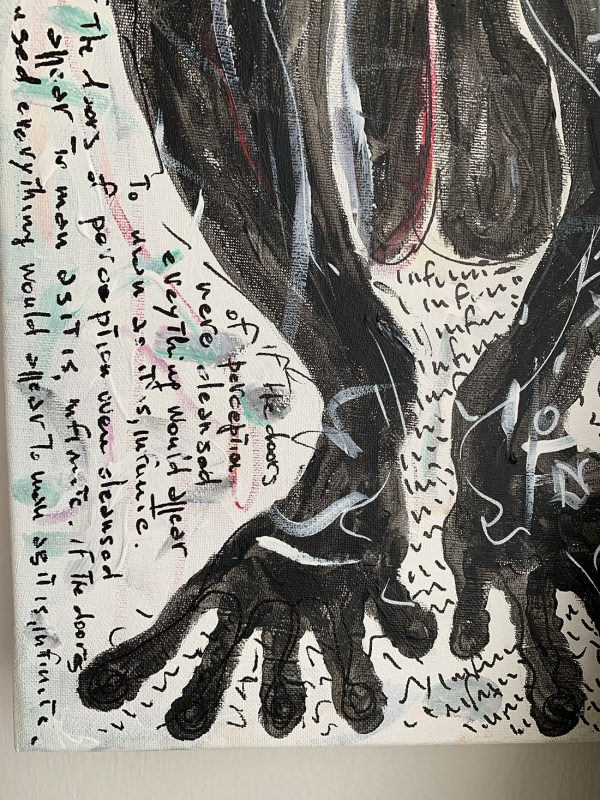 if the doors
of perception
were cleansed
everything would appear
To man as it is, infinite.
The doors of perception were cleansed
appear to man as it is, infinite. if the doors
nsed everything would appear to man as it is, infinite.
infini
infini
infin
infin